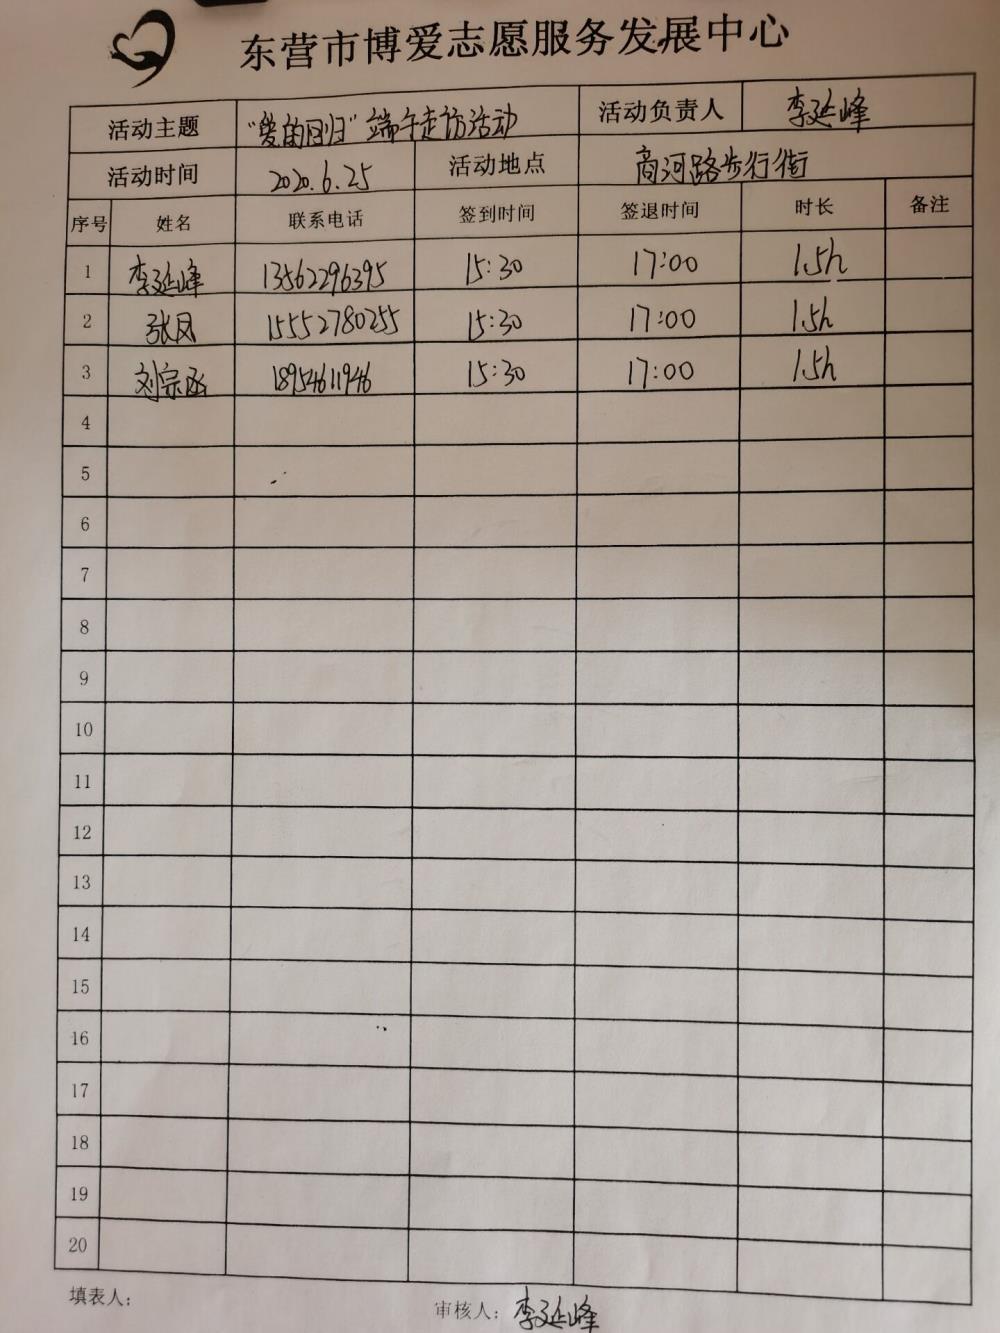 东营市博爱志愿服务发展中心
活动主题 "爱的回归"端午走访活动 活动负责人 李延峰
活动时间 2020.6.25 活动地点 商河路步行街
序号 姓名 联系电话 签到时间 签退时间 时长 备注
1 李延峰 13562296395 15:30 17:00 1.5h
2 张凤 15552780255 15:30 17:00 1.5h
3 刘宗函 18954611946 15:30 17:00 1.5h
4
5
6
7
8
9
10
11
12
13
14
15
16
17
18
19
20
填表人: 审核人: 李延峰